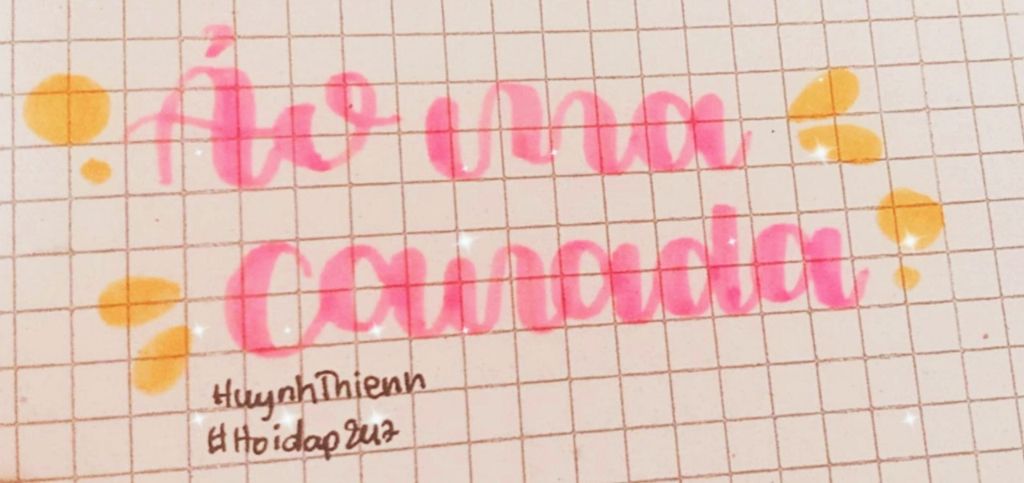 Áo ma
Canada
HuynhThienn
#Hoidap247